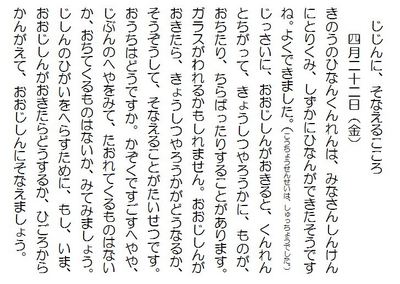 じしんに、そなえるこころ
四月二十二日（金）
きのうのひなんくんれんは、みなさんしんけん
にとりくみ、しずかにひなんができたそうです
ね。よくできました。（こうちょうせんせいは、しゅっちょうでした。）
じっさいに、おおじしんがおきると、くんれん
とちがって、きょうしつやろうかに、ものが、
おちたり、ちらばったりすることがあります。
ガラスがわれるかもしれません。おおじしんが
おきたら、きょうしつやろうかがどうなるか、
そうぞうして、そなえることがたいせつです。
おうちはどうですか。かぞくですごすへやや、
じぶんのへやをみて、たおれてくるものはない
か、おちてくるものはないか、みてみましょう。
じしんのひがいをへらすために、もし、いま、
おおじしんがおきたらどうするか、ひごろから
かんがえて、おおじしんにそなえましょう。